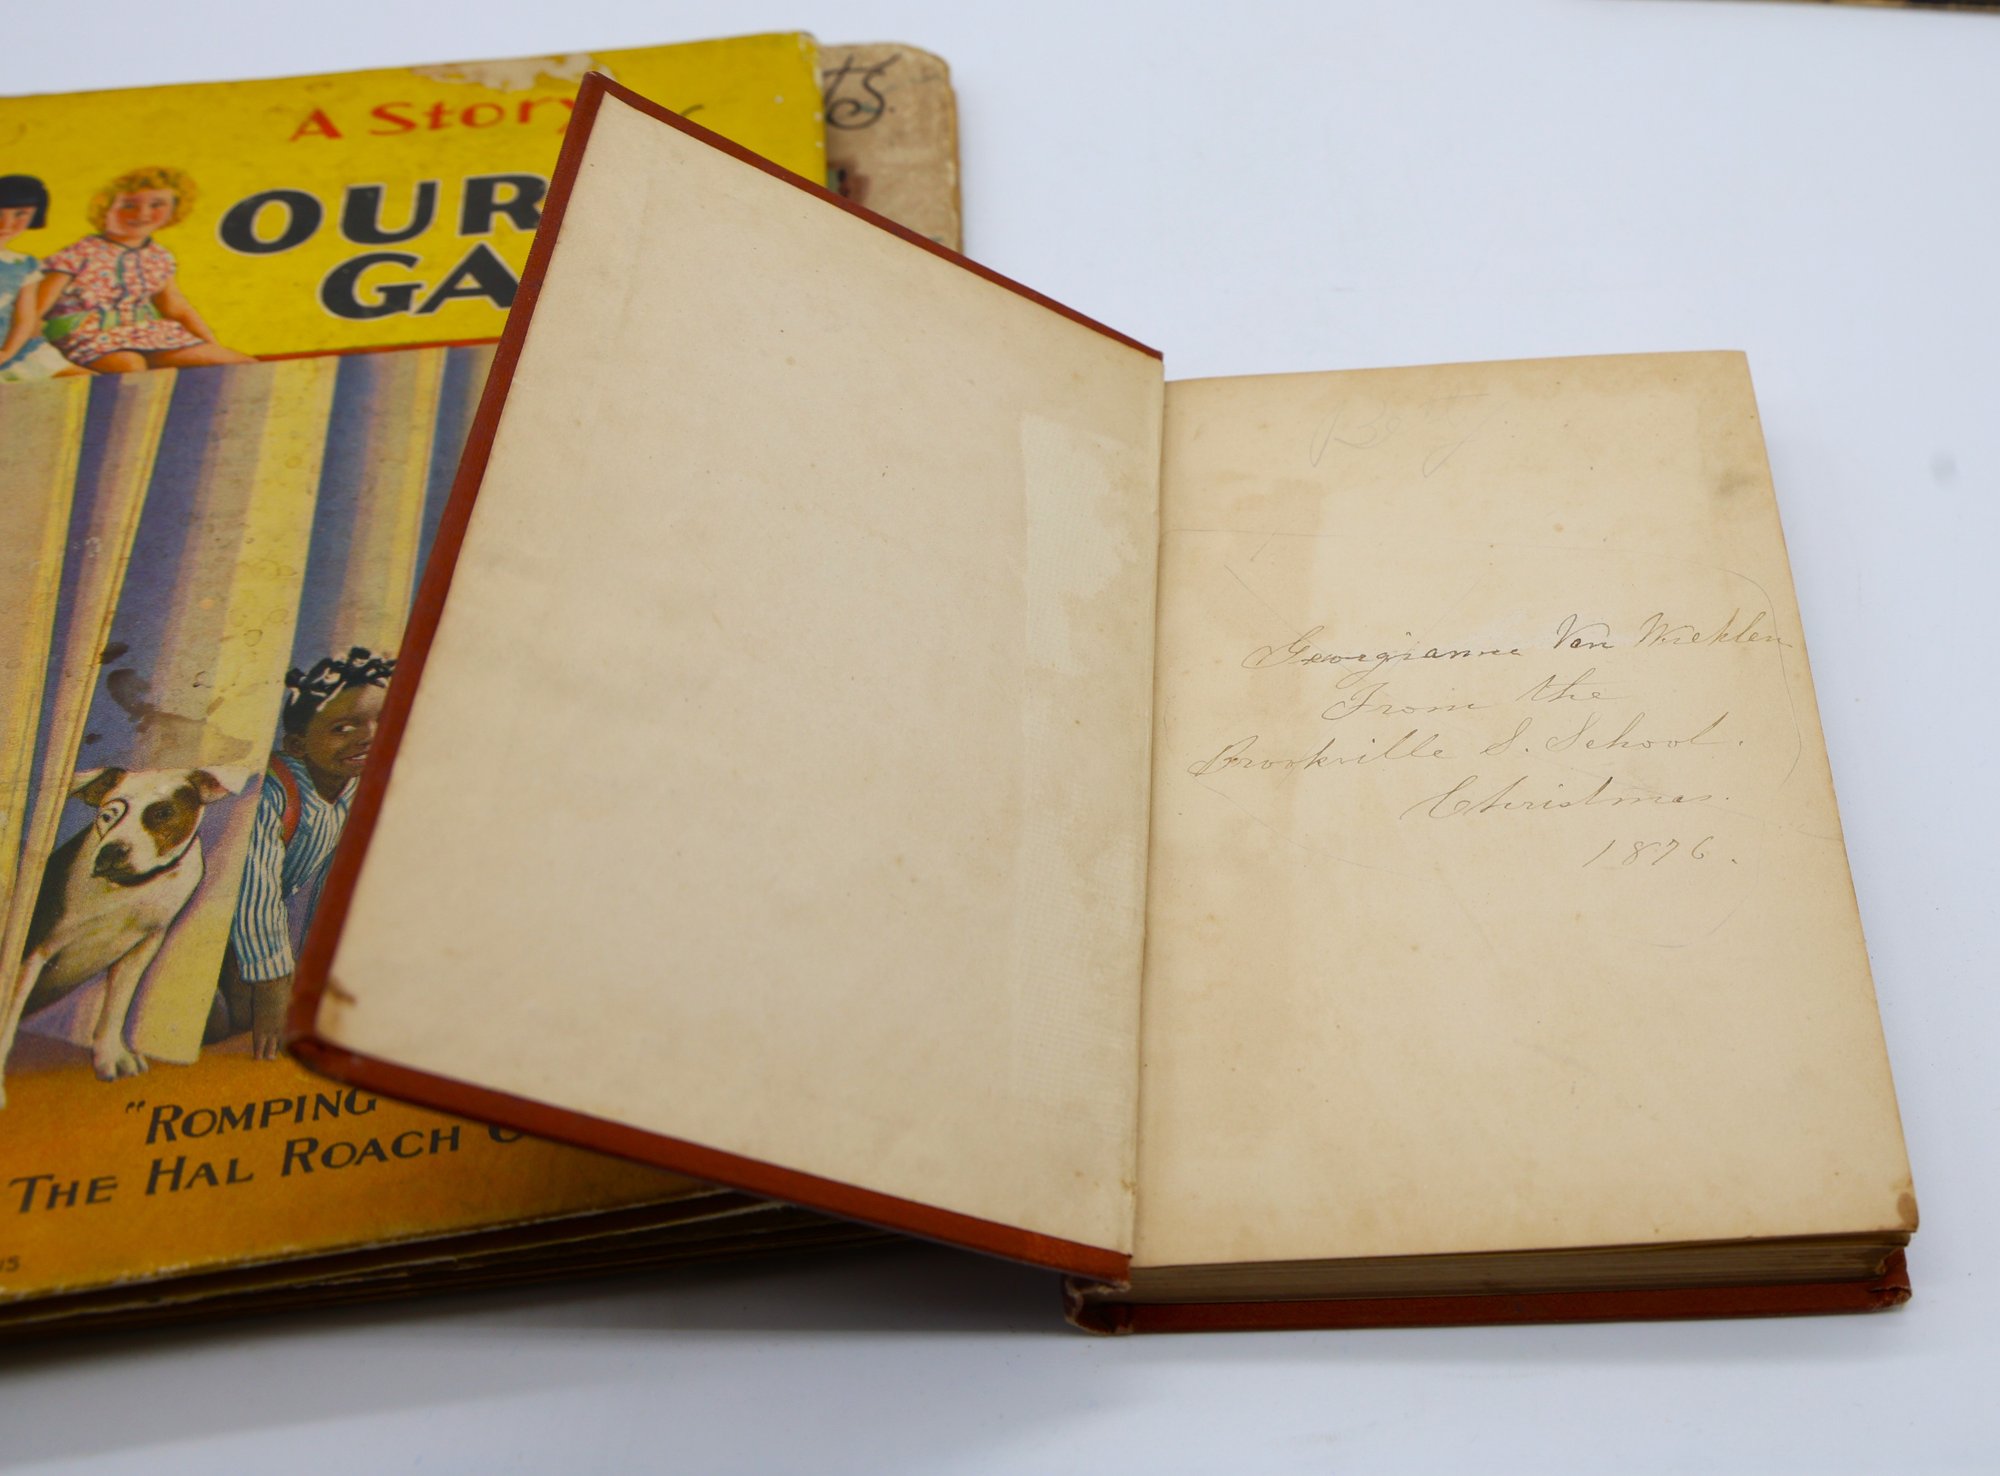 A Story
OUR
GA
"ROMPING
THE HAL ROACH
Betty
Georgianna Van Wicklen
From the
Brookville S. School.
Christmas.
1876.